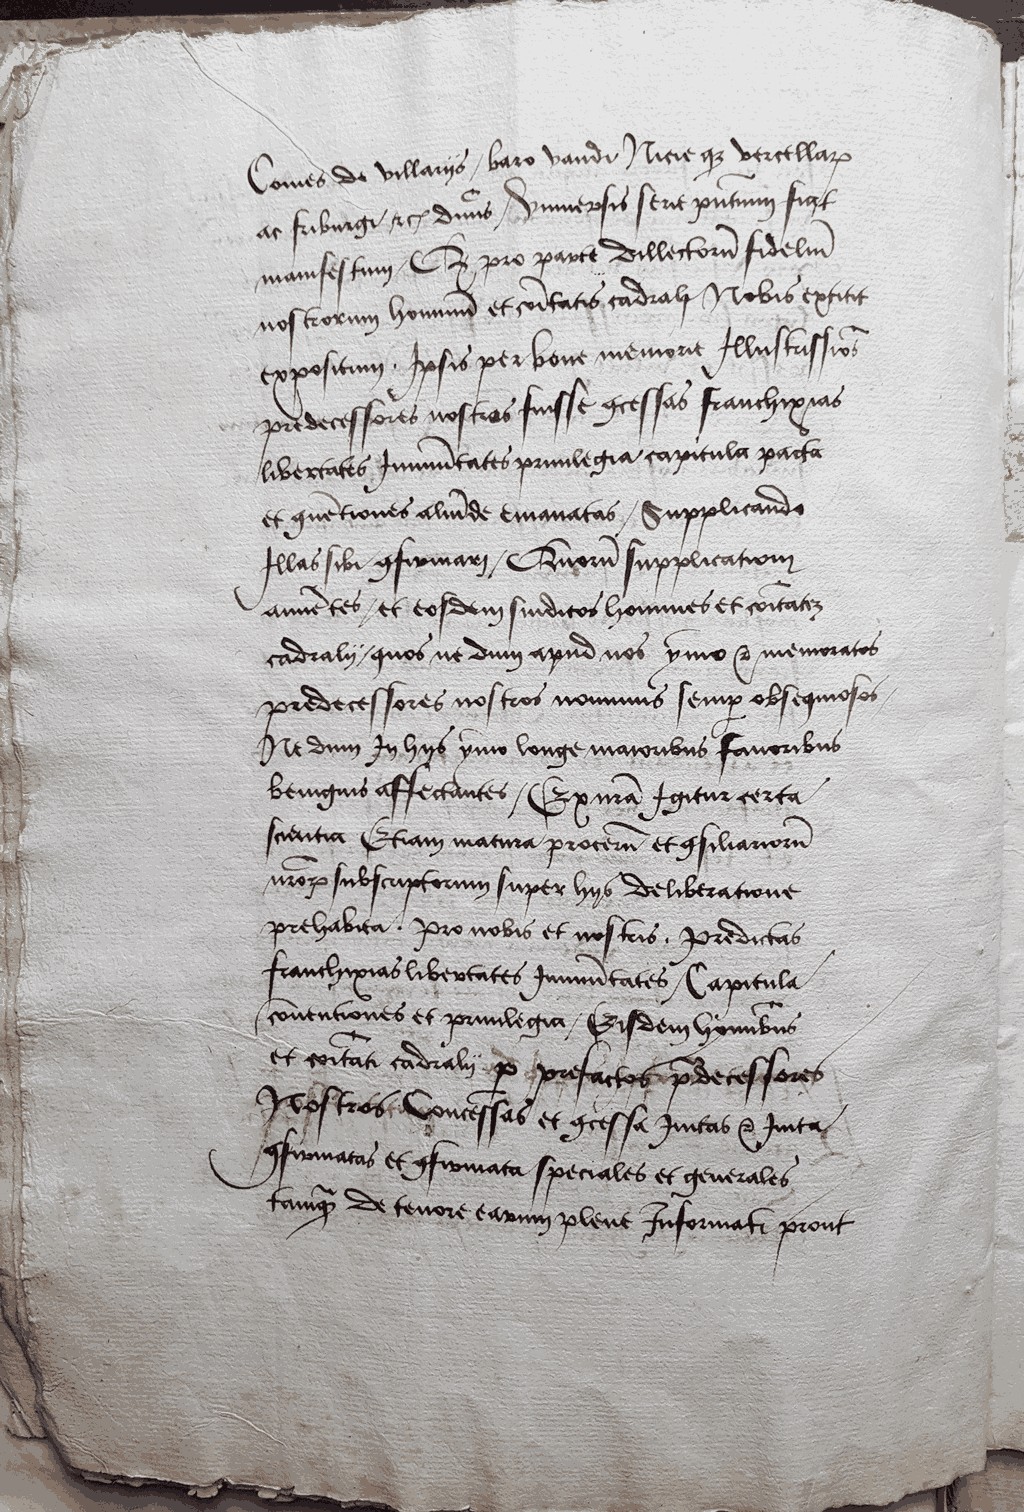 Comes de villariis / baro vaudi Nicie qz vercellarꝝ
ac friburgi / ꝛcꝫ dñus / Vniuersis serie pñtium fiat
manifestum / Qꝫ pro parte dillectorũ fidelũ
nostrorum hominũ et cõitatis cadralij Nobis extitit
expositum . Ipsis per bone memorie Illustrissiõs
predecessores nostros fuisse ꝯcessas franchixias
libertates Immũitates priuilegia capitula pacta
et ꝯuẽtiones aliũde emanatas / Supplicando
Illas sibi ꝯfirmari / Quorũ supplicationi
annuẽtes / et eosdem sindicos homines et cõitatẽ
cadralij / quos ne dum apud nos ymo ⁊ memoratos
predecessores nostros nouimus semꝑ obsequiosos /
Ne dum In hijs ymo longe maioribus fauoribus
benignis affectantes / Ex nrã Igitur certa
scientia Etiam matura procerũ et ꝯsiliariorũ
nrõrꝝ subscriptorum super hijs deliberatione
prehabita . pro nobis et nostris . predictas
franchixias libertates Immũitates / Capitula
cõuentiones et priuilegia / Eisdem hominibus
et cõitati cadralij ꝑ prefactos p̃decessores
Nostros Concessas et ꝯcessa Imitas ⁊ Inita
ꝯfirmatas et ꝯfirmata speciales et generales
tamꝗ̃ de tenore earum plene Informati prout